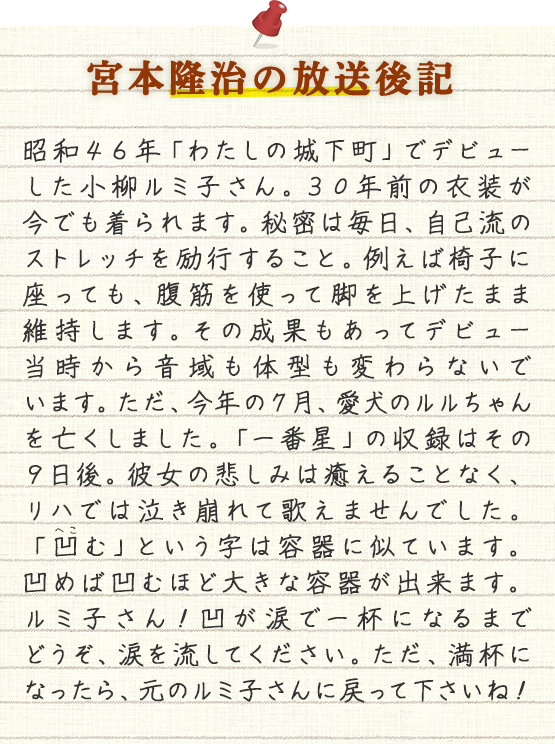 宮本隆治の放送後記
昭和４６年「わたしの城下町」でデビュー
した小柳ルミ子さん。３０年前の衣装が
今でも着られます。秘密は毎日、自己流の
ストレッチを励行すること。例えば椅子に
座っても、腹筋を使って脚を上げたまま
維持します。その成果もあってデビュー
当時から音域も体型も変わらないで
います。ただ、今年の７月、愛犬のルルちゃん
を亡くしました。「一番星」の収録はその
９日後。彼女の悲しみは癒えることなく、
リハでは泣き崩れて歌えませんでした。
へこ
「凹む」という字は容器に似ています。
凹めば凹むほど大きな容器が出来ます。
ルミ子さん！凹が涙で一杯になるまで
どうぞ、涙を流してください。ただ、満杯に
なったら、元のルミ子さんに戻って下さいね！